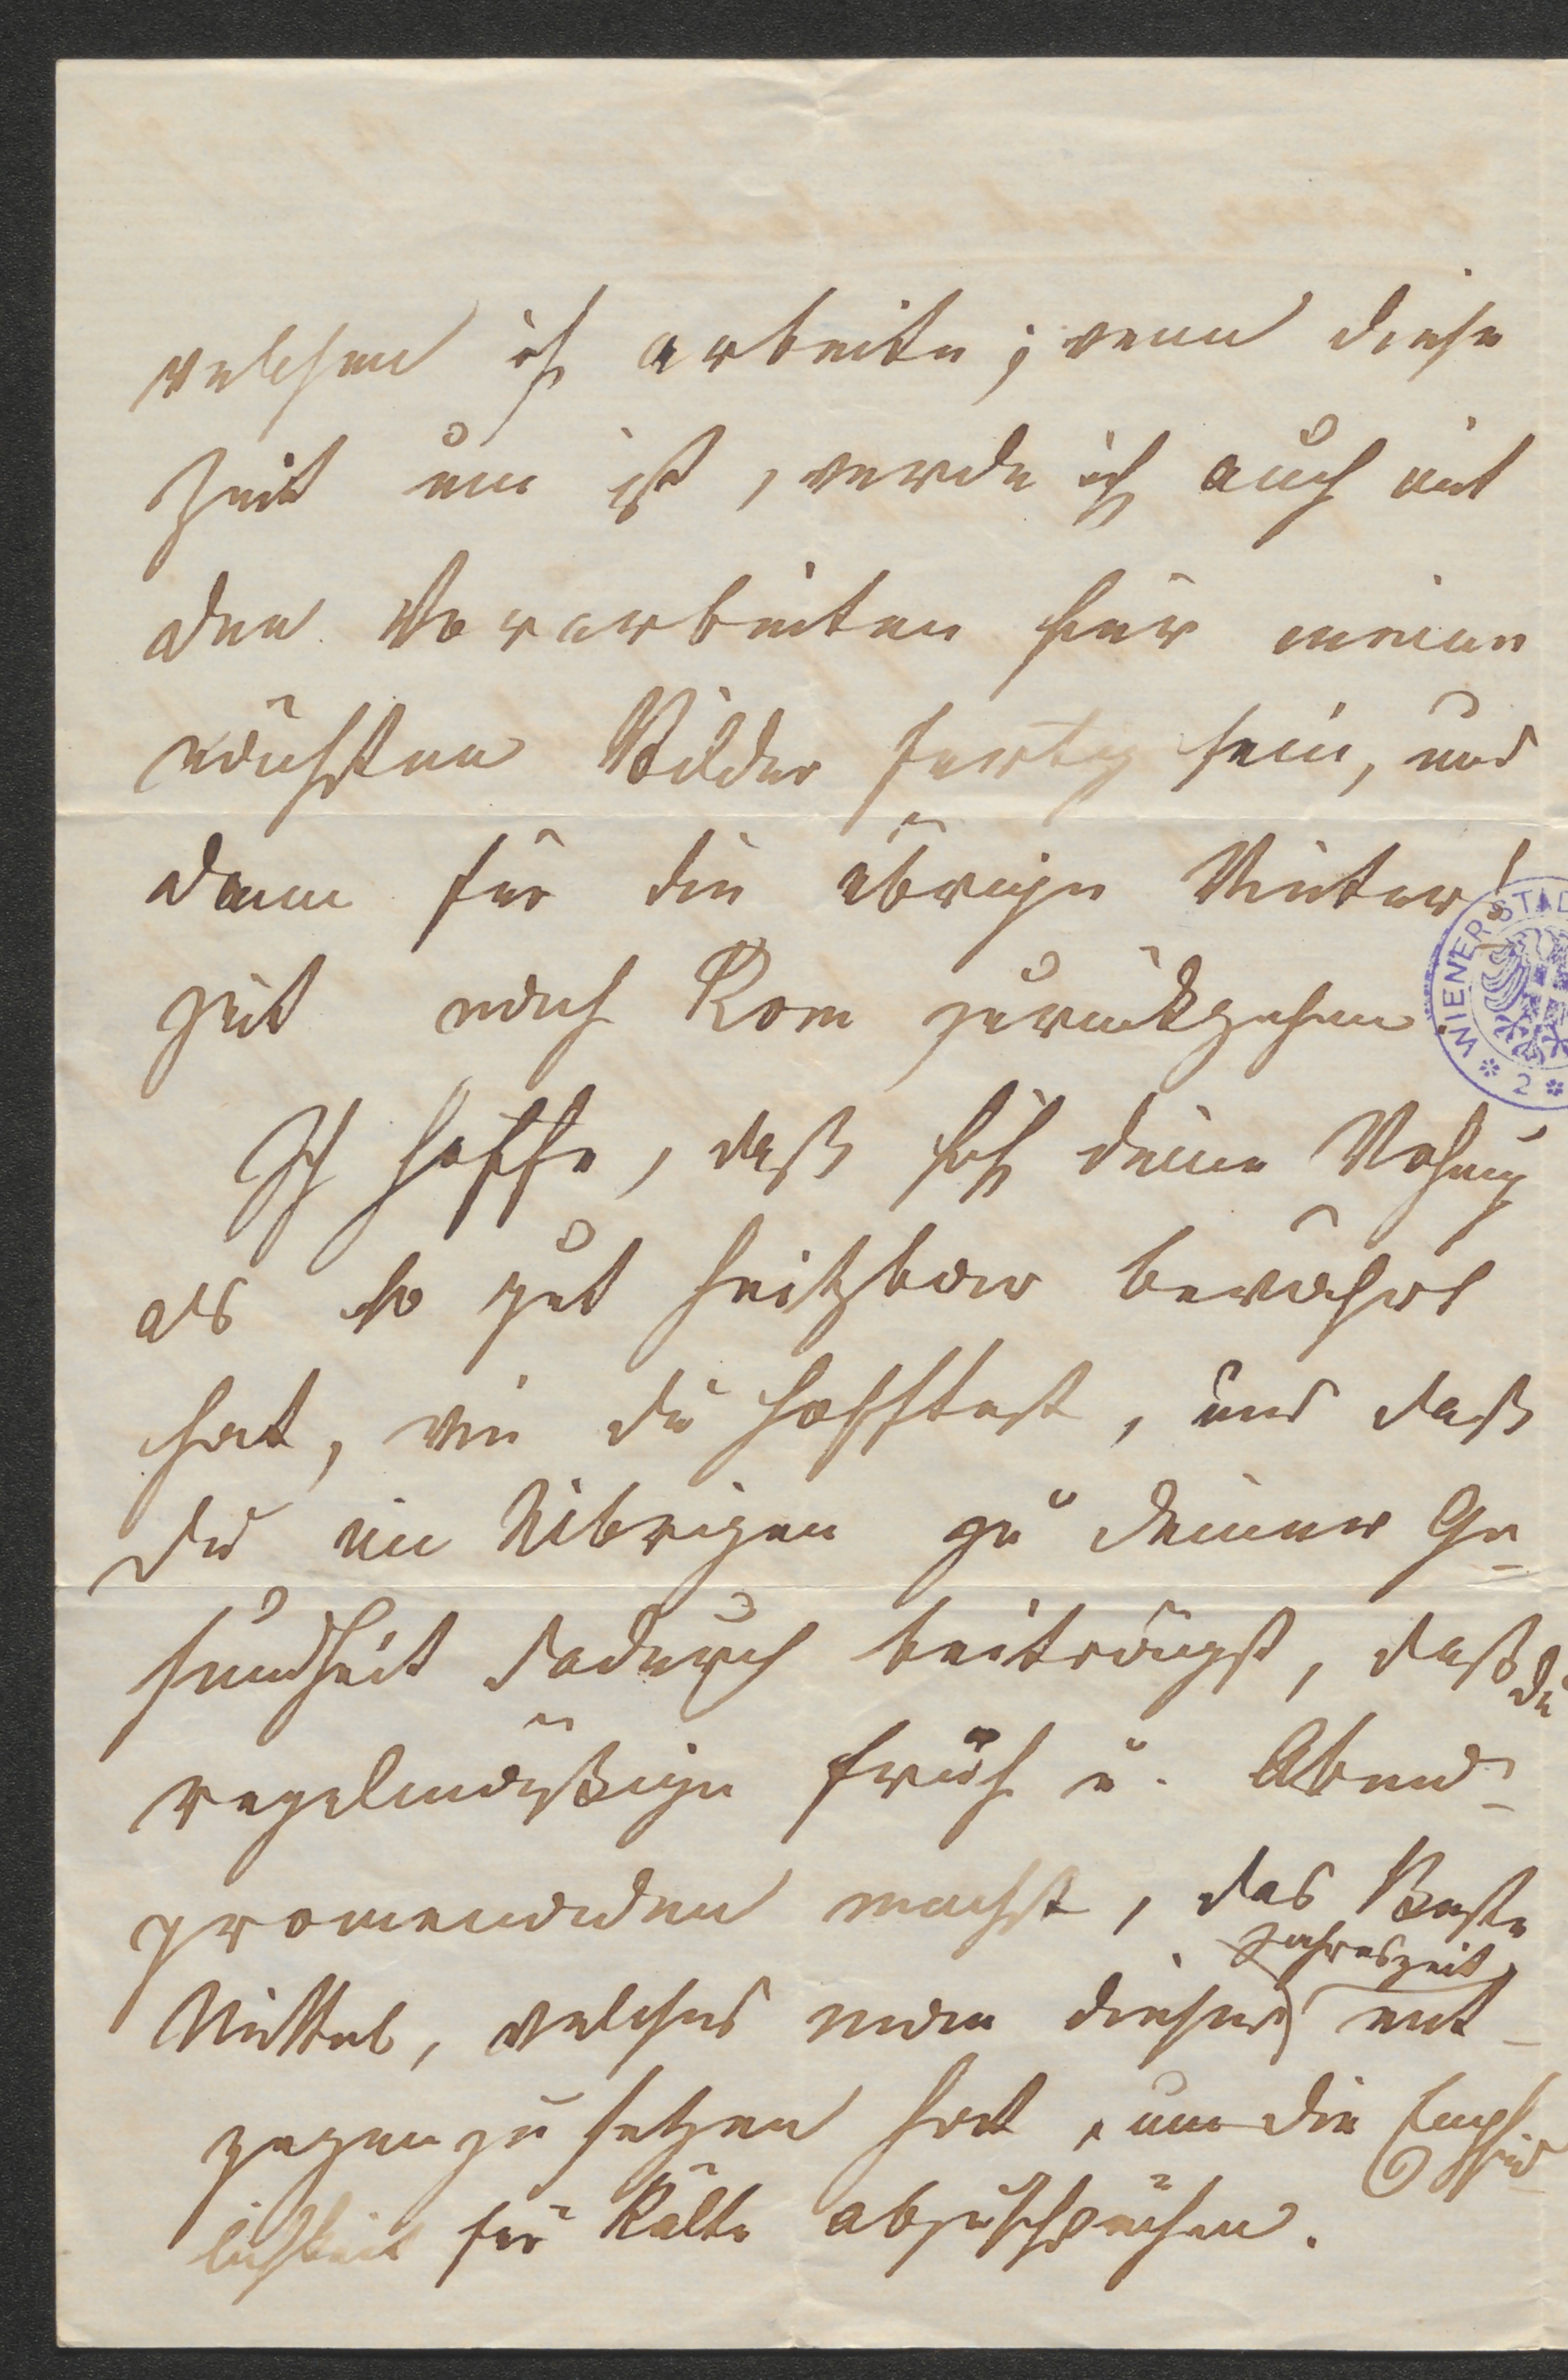 welchem ich arbeite; wenn diese
Zeit um ist, werde ich auch mit
den Vorarbeiten für meine
nächsten Bilder fertig sein, und
dann für die übrige Winter-
zeit nach Rom zurückgehen.
WIENER STAD
2
Ich hoffe, daß sich deine Wohnung
als so gut heitzbar bewährt
hat, wie du hofftest, und daß
du im Übrigen zu deiner Ge-
sundheit dadurch beiträgst, daß du
regelmäßige früh u. Abend-
promenaden machst, das Beste
Jahreszeit
Mittel, welches man dieser ent-
gegenzusetzen hat, um die Empfind-
lichkeit für Kälte abzuschwächen.